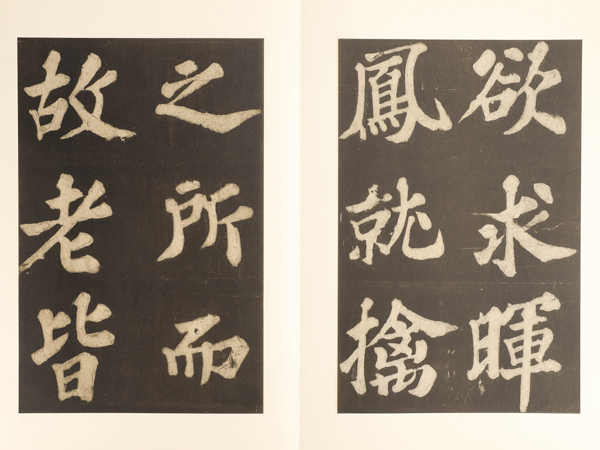 欲求暉
鳳就擒
之所而
故老皆